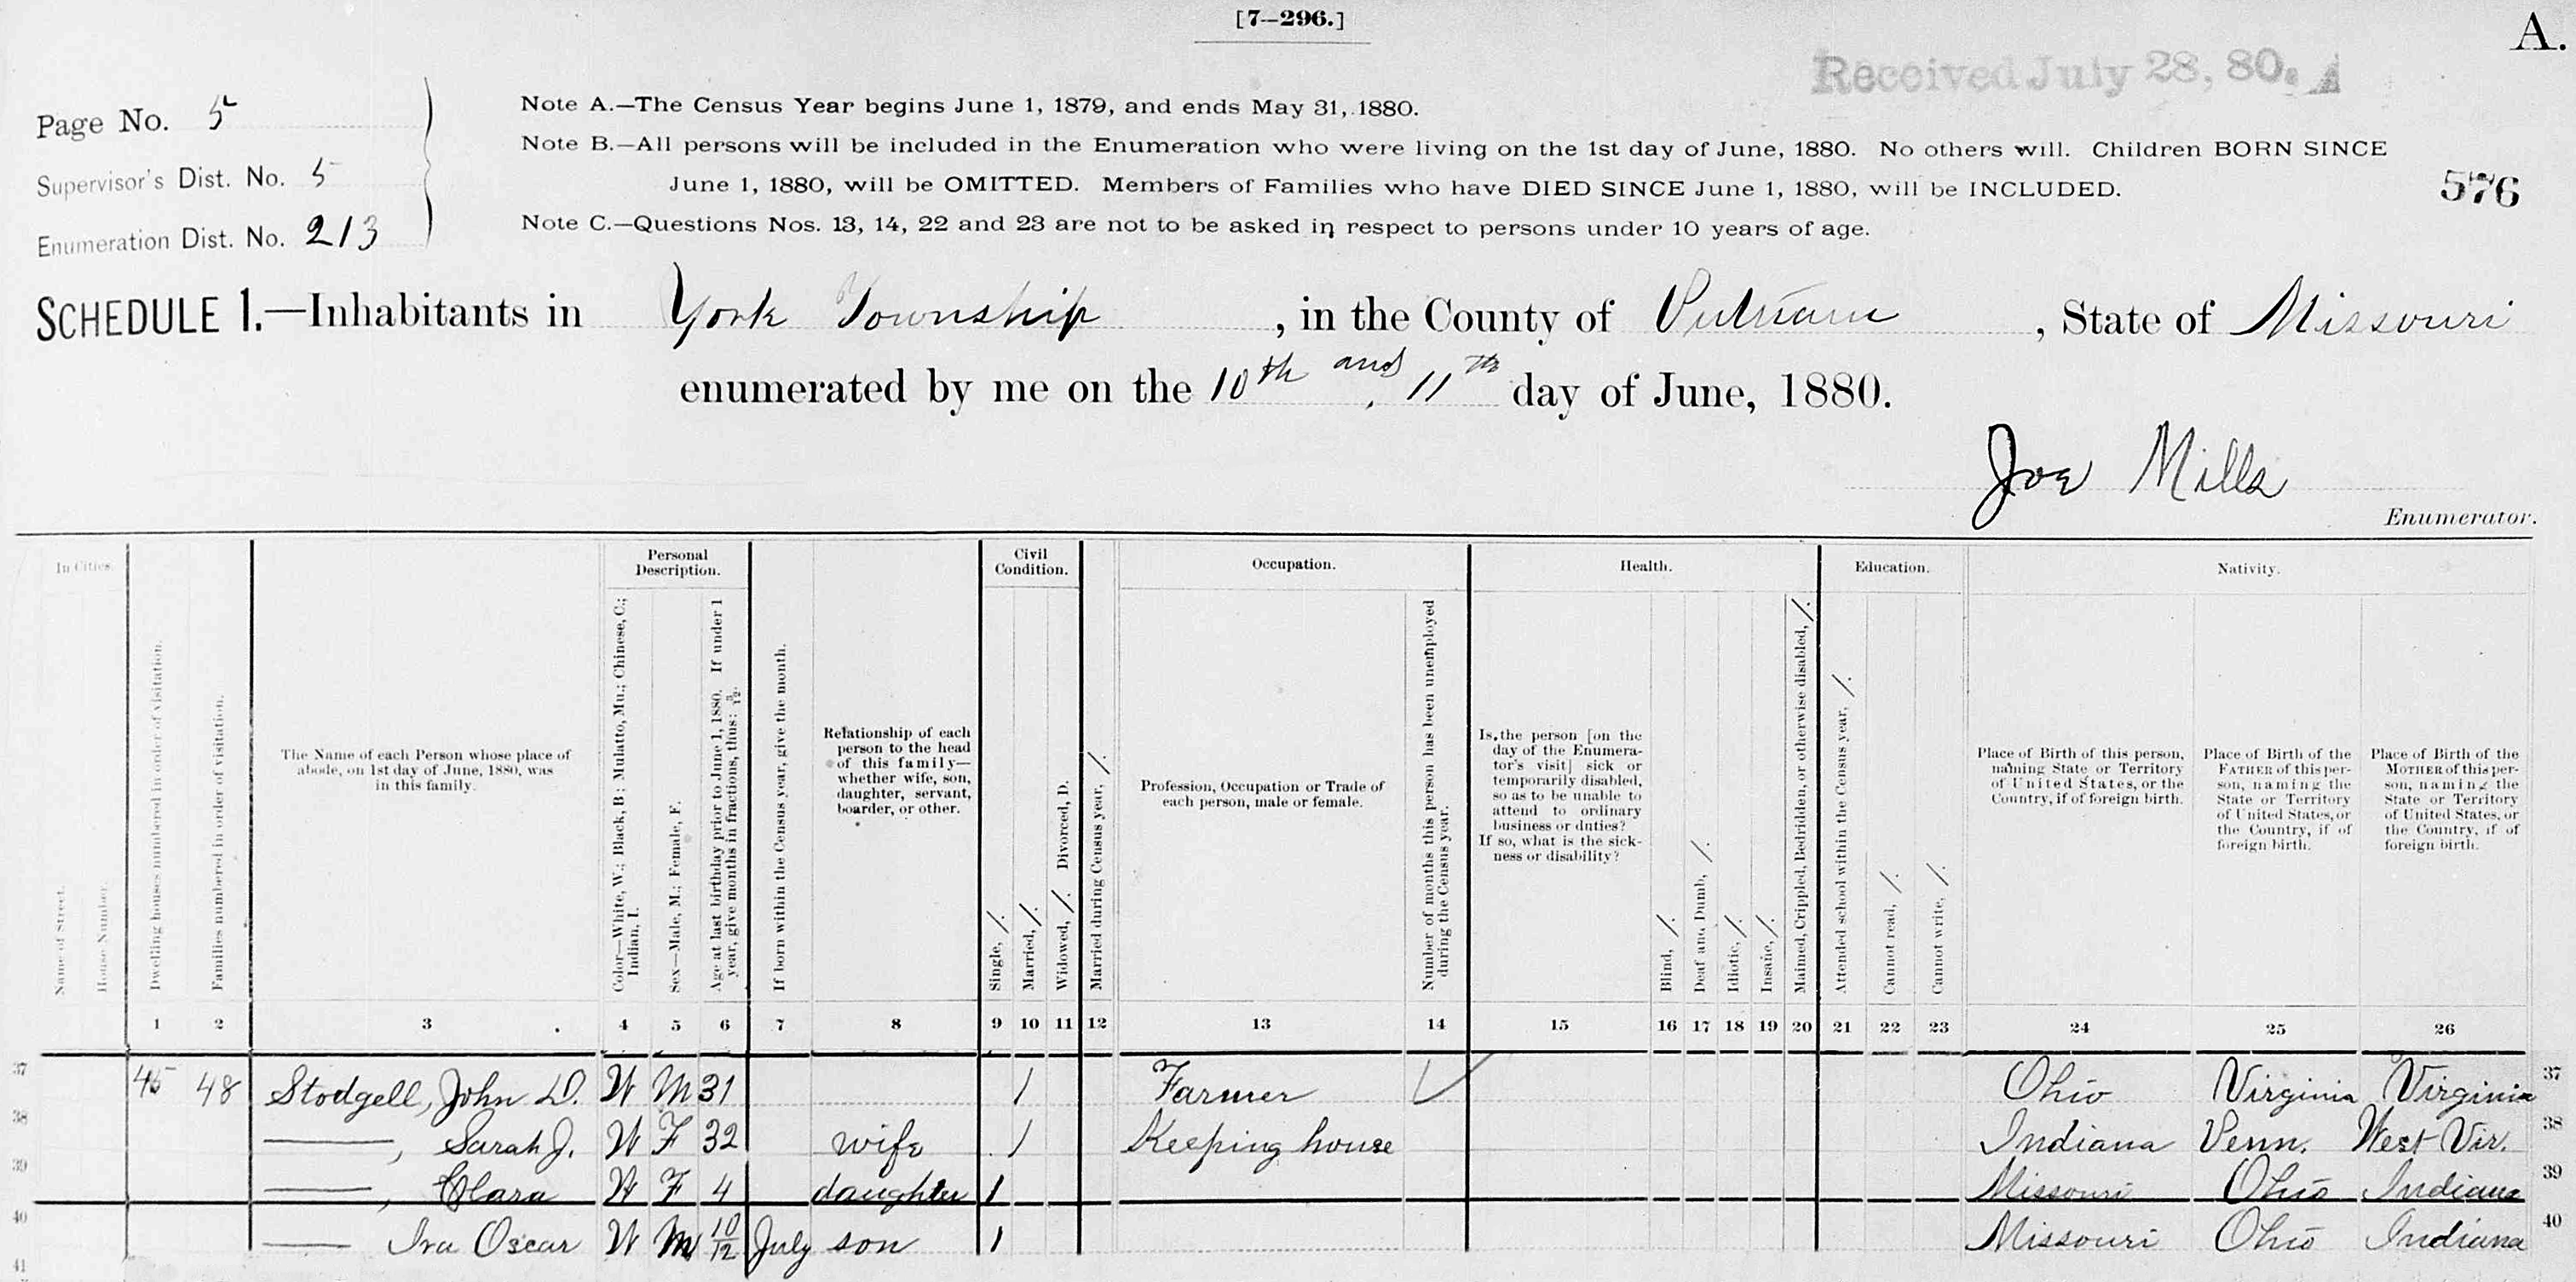 [7–296.]
A.
Received July 28, 80.
Page No. 5
Supervisor's Dist. No. 5
Enumeration Dist. No. 213
Note A.—The Census Year begins June 1, 1879, and ends May 31, 1880.
Note B.—All persons will be included in the Enumeration who were living on the 1st day of June, 1880. No others will. Children BORN SINCE
June 1, 1880, will be OMITTED. Members of Families who have DIED SINCE June 1, 1880, will be INCLUDED.
Note C.—Questions Nos. 13, 14, 22 and 23 are not to be asked in respect to persons under 10 years of age.
576
SCHEDULE 1.—Inhabitants in York Township, in the County of Putnam, State of Missouri
enumerated by me on the 10th and 11th day of June, 1880.
Joe Mills
Enumerator.
In Cities.
Name of Street.
House Number.
Dwelling houses numbered in order of visitation.
Families numbered in order of visitation.
The Name of each Person whose place of
abode, on 1st day of June, 1880, was
in this family.
Personal
Description.
Color—White, W.; Black, B; Mulatto, Mu.; Chinese, C.;
Indian, I.
Sex—Male, M.; Female, F.
Age at last birthday prior to June 1, 1880. If under 1
year, give months in fractions, thus: 3/12.
If born within the Census year, give the month.
Relationship of each
person to the head
of this family—
whether wife, son,
daughter, servant,
boarder, or other.
Civil
Condition.
Single, /.
Married, /.
Widowed, /. Divorced, D.
Married during Census year, /.
Occupation.
Profession, Occupation or Trade of
each person, male or female.
Number of months this person has been unemployed
during the Census year.
Health.
Is the person [on the
day of the Enumera-
tor's visit] sick or
temporarily disabled,
so as to be unable to
attend to ordinary
business or duties?
If so, what is the sick-
ness or disability?
Blind, /.
Deaf and Dumb, /.
Idiotic, /.
Insane, /.
Maimed, Crippled, Bedridden, or otherwise disabled, /.
Education.
Attended school within the Census year, /.
Cannot read, /.
Cannot write, /.
Nativity.
Place of Birth of this person,
naming State or Territory
of United States, or the
Country, if of foreign birth.
Place of Birth of the
FATHER of this per-
son, naming the
State or Territory
of United States, or
the Country, if of
foreign birth.
Place of Birth of the
MOTHER of this per-
son, naming the
State or Territory
of United States, or
the Country, if of
foreign birth.
1 2 3 4 5 6 7 8 9 10 11 12 13 14 15 16 17 18 19 20 21 22 23 24 25 26
37 45 48 Stodgell, John D. W M 31 / Farmer Ohio Virginia Virginia 37
38 ——, Sarah J. W F 32 wife / Keeping house Indiana Penn. West Vir. 38
39 ——, Clara W F 4 daughter / Missouri Ohio Indiana 39
40 —— Ira Oscar W M 10/12 July son / Missouri Ohio Indiana 40
41